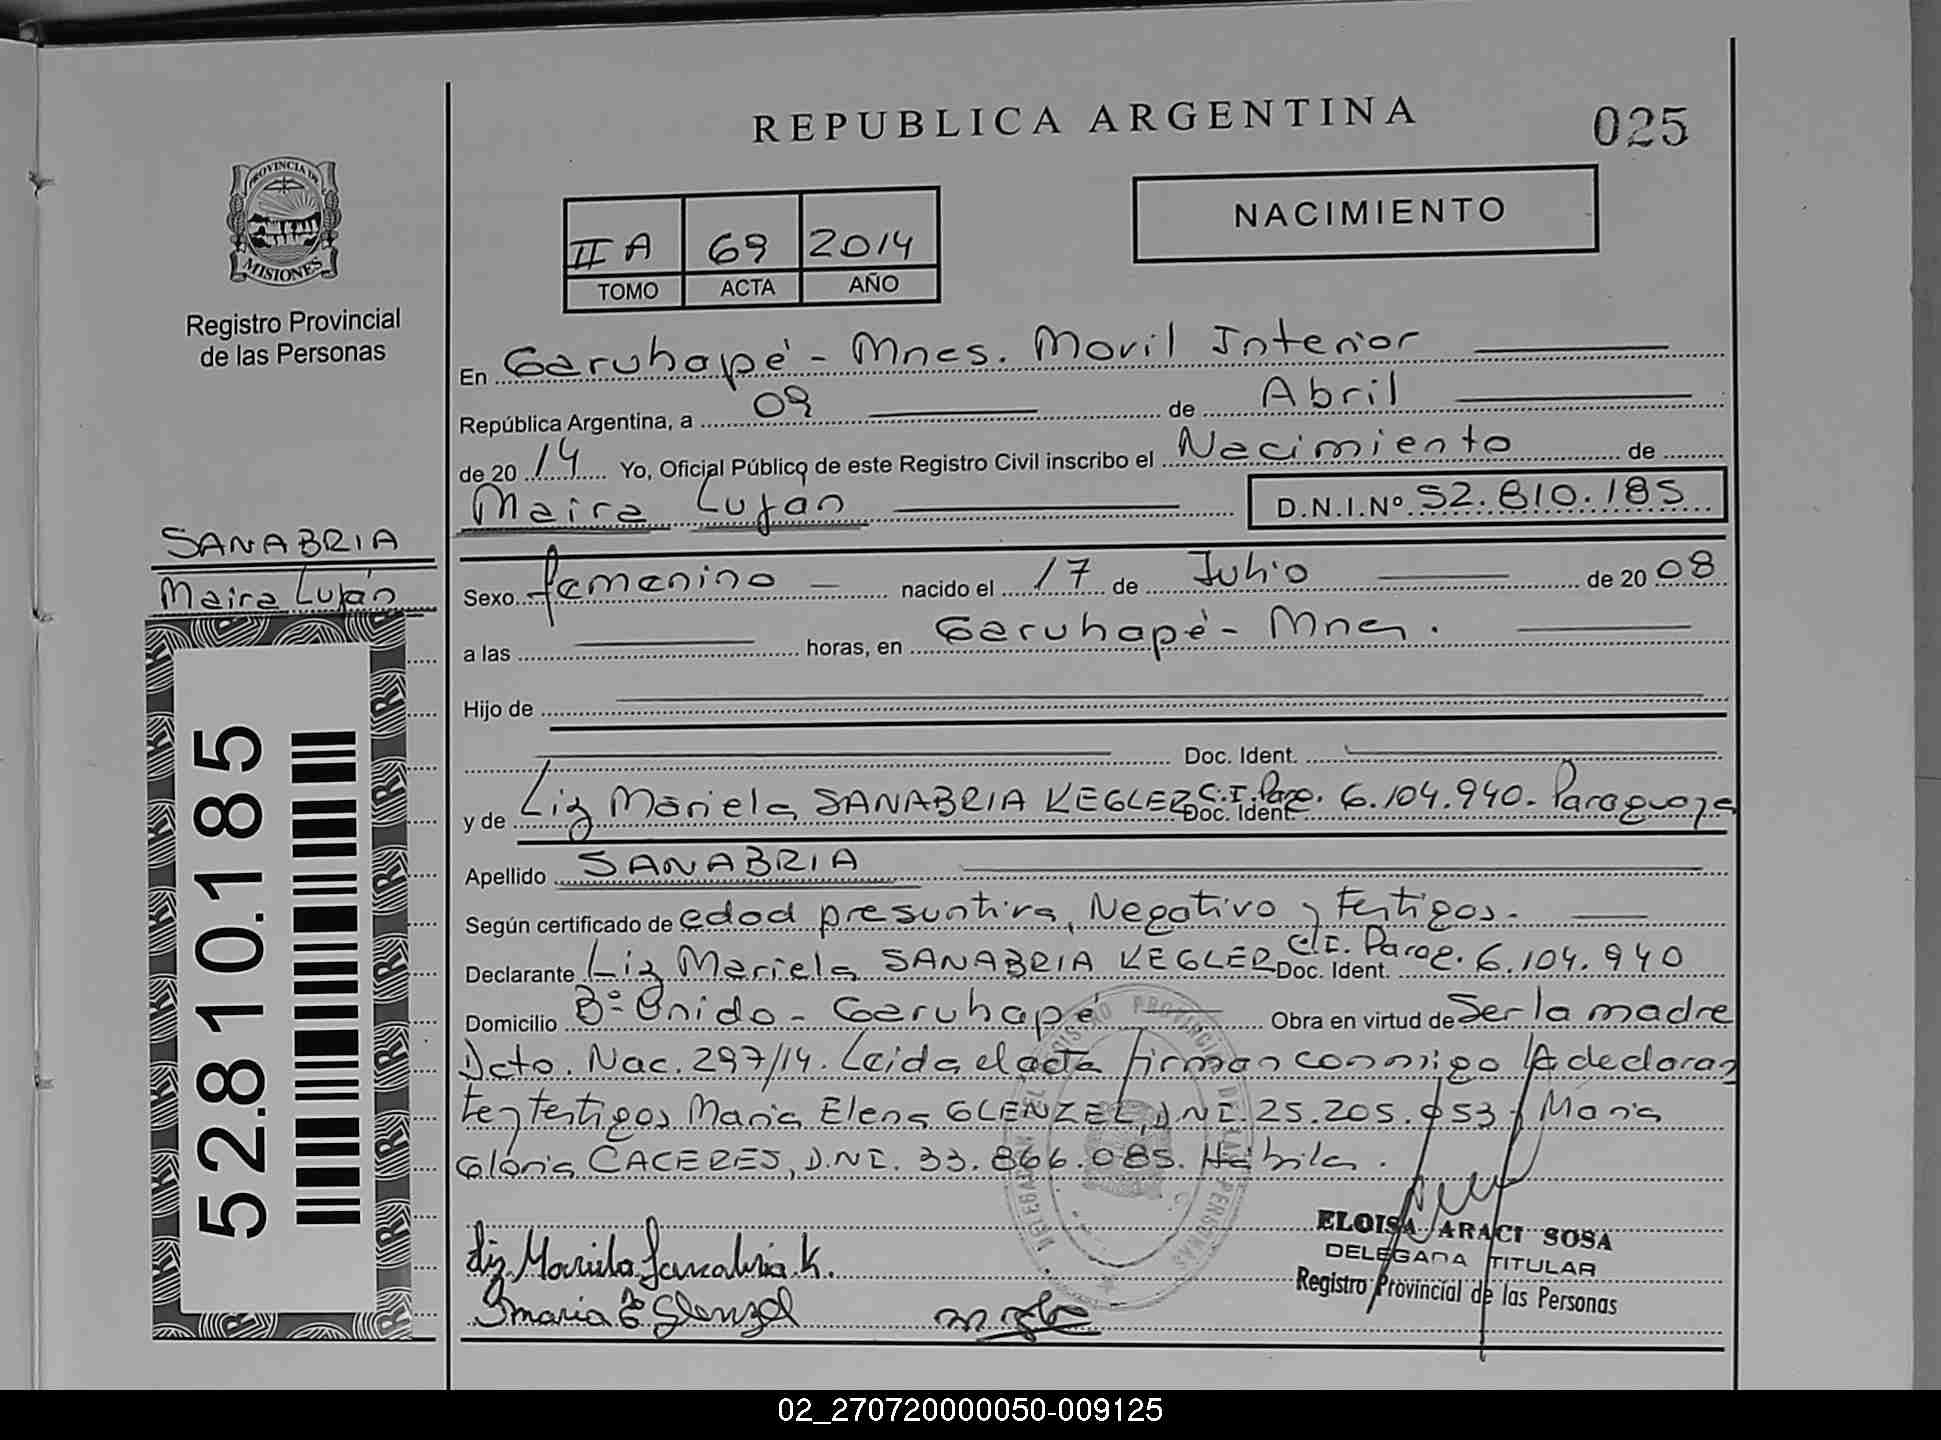 REPUBLICA ARGENTINA
025
PROVINCIA DE
MISIONES
Registro Provincial
de las Personas
II A 69 2014
TOMO ACTA AÑO
NACIMIENTO
En Garuhapé - Mnes. Movil Interior
República Argentina, a 09 de Abril
de 20 14 Yo, Oficial Público de este Registro Civil inscribo el Nacimiento de
Maira Luján D.N.I.Nº 52.810.185
SANABRIA
Maira Luján
Sexo femenino nacido el 17 de Julio de 20 08
a las horas, en Garuhapé - Mnes.
Hijo de
Doc. Ident.
y de Liz Mariela SANABRIA KEGLER Doc. Ident. C.I. Parag. 6.104.940. Paraguaya
Apellido SANABRIA
Según certificado de edad presuntiva, Negativo y testigos.
Declarante Liz Mariela SANABRIA KEGLER Doc. Ident. C.I. Parag. 6.104.940
Domicilio Bº Unido - Garuhapé Obra en virtud de Ser la madre
Dcto. Nac. 297/14. Leida el acta firman conmigo la declaran
te y testigos Maria Elena GLENZEL, DNI. 25.205.953 y Maria
Gloria CACERES, D.NI. 33.866.085. Hábiles.
52.810.185
Liz Mariela Sanabria K.
Maria E Glenzel
ELOISA ARACI SOSA
DELEGADA TITULAR
Registro Provincial de las Personas
02_270720000050-009125